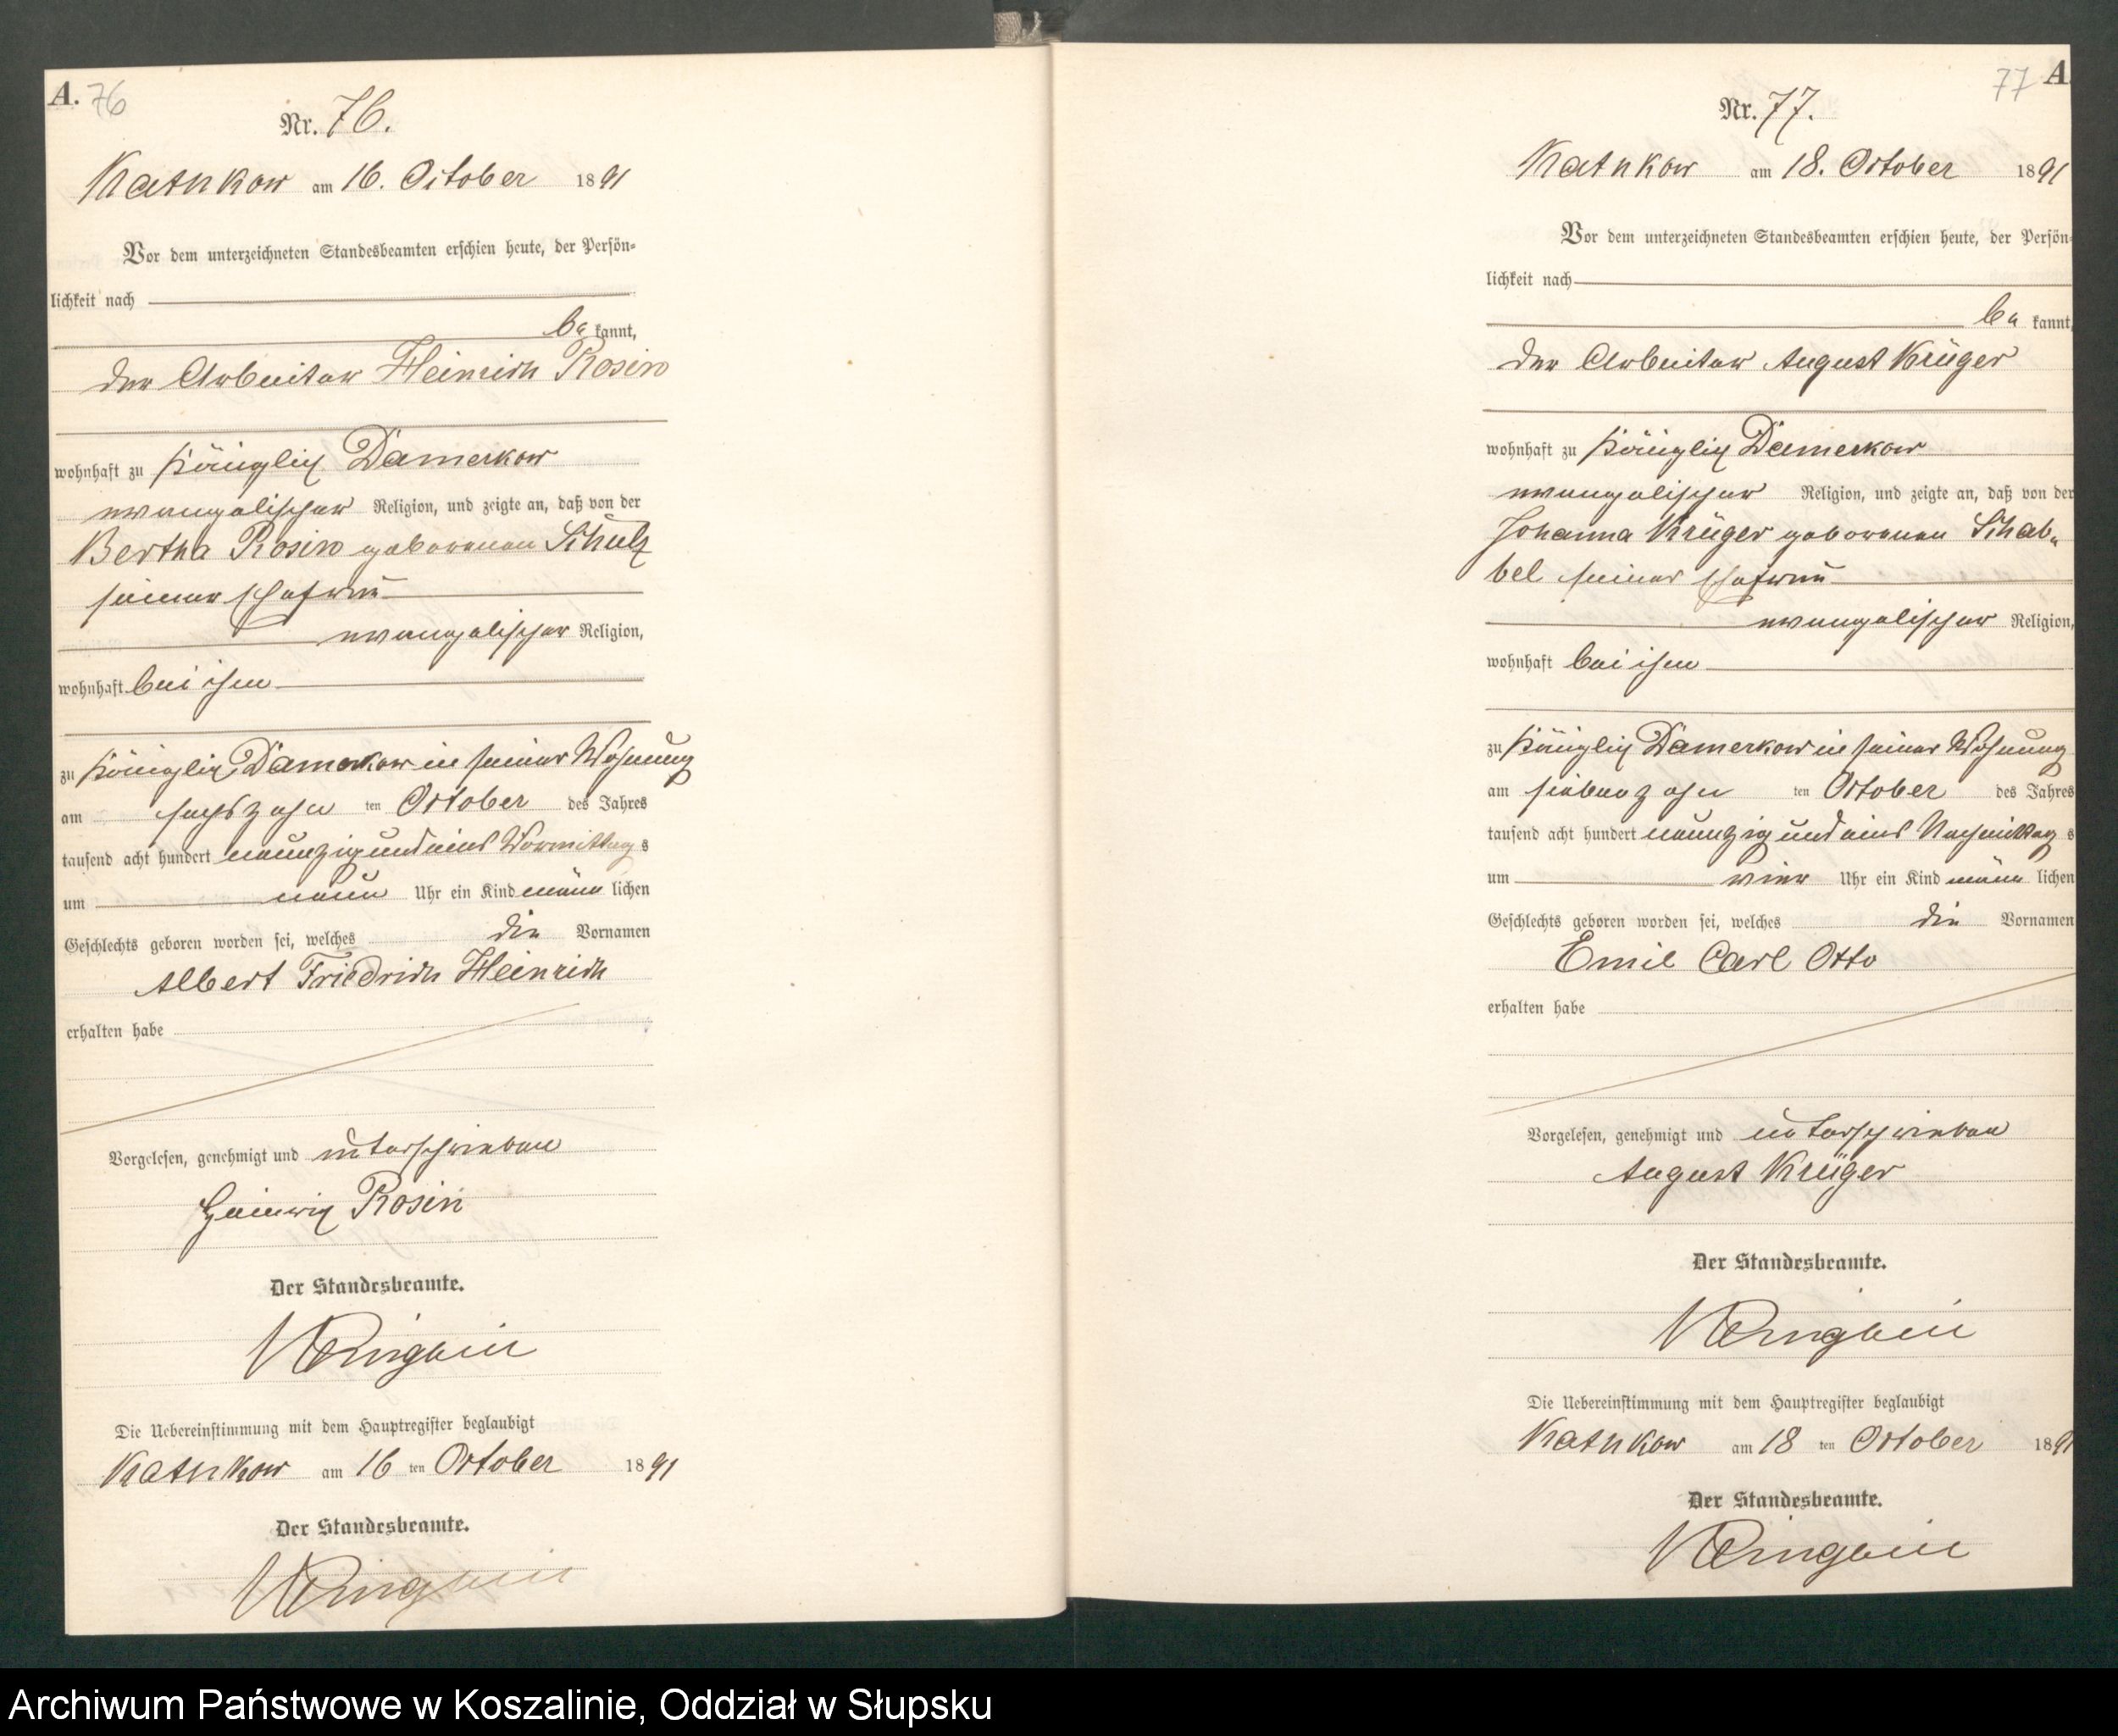 A. 76
Nr. 76.
Kathkow am 16. October 1891
Vor dem unterzeichneten Standesbeamten erschien heute, der Persön-
lichkeit nach
be kannt,
der Arbeiter Heinrich Rosin
wohnhaft zu Königlich Damerkow
evangelischer Religion, und zeigte an, daß von der
Bertha Rosin geborenen Schulz
seiner Ehefrau
evangelischer Religion,
wohnhaft bei ihm
zu Königlich Damerkow in seiner Wohnung
am sechszehn ten October des Jahres
tausend acht hundert neunzig und eins Vormittag s
um neun Uhr ein Kind männ lichen
Geschlechts geboren worden sei, welches die Vornamen
Albert Friedrich Heinrich
erhalten habe
Vorgelesen, genehmigt und unterschrieben
Heinrich Rosin
Der Standesbeamte.
Die Uebereinstimmung mit dem Hauptregister beglaubigt
Kathkow am 16 ten October 1891
Der Standesbeamte.
77 A
Nr. 77.
Kathkow am 18. October 1891
Vor dem unterzeichneten Standesbeamten erschien heute, der Persön-
lichkeit nach
be kannt,
der Arbeiter August Krüger
wohnhaft zu Königlich Damerkow
evangelischer Religion, und zeigte an, daß von der
Johanna Krüger geborenen Schab-
bel seiner Ehefrau
evangelischer Religion,
wohnhaft bei ihm
zu Königlich Damerkow in seiner Wohnung
am siebenzehn ten October des Jahres
tausend acht hundert neunzig und eins Nachmittag s
um vier Uhr ein Kind männ lichen
Geschlechts geboren worden sei, welches die Vornamen
Emil Carl Otto
erhalten habe
Vorgelesen, genehmigt und unterschrieben
August Krüger
Der Standesbeamte.
Die Uebereinstimmung mit dem Hauptregister beglaubigt
Kathkow am 18 ten October 1891
Der Standesbeamte.
Archiwum Państwowe w Koszalinie, Oddział w Słupsku